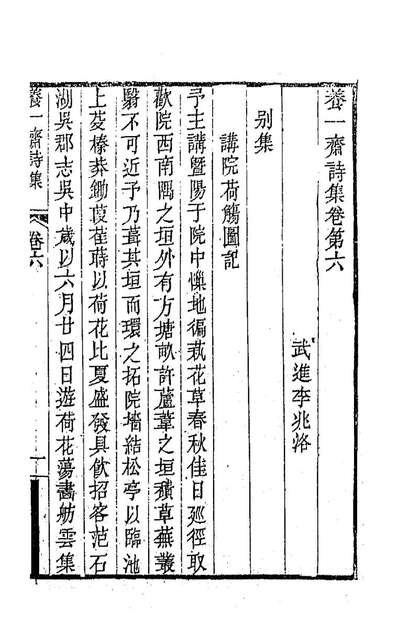 養一齋詩集卷第六
武進李兆洛
別集
講院荷觴圖記
予主講暨陽于院中慺地徧栽花草春秋佳日廵徑取
歡院西南隅之垣外有方塘畝許蘆葦之垣積草蕪叢
翳不可近予乃葺其垣而環之拓院墻結松亭以臨池
上芟榛莽鋤葭萑蒔以荷花比夏盛發具飲招客范石
湖吳郡志吳中歲以六月廿四日遊荷花蕩畫舫雲集
養一齋詩集
卷六
一